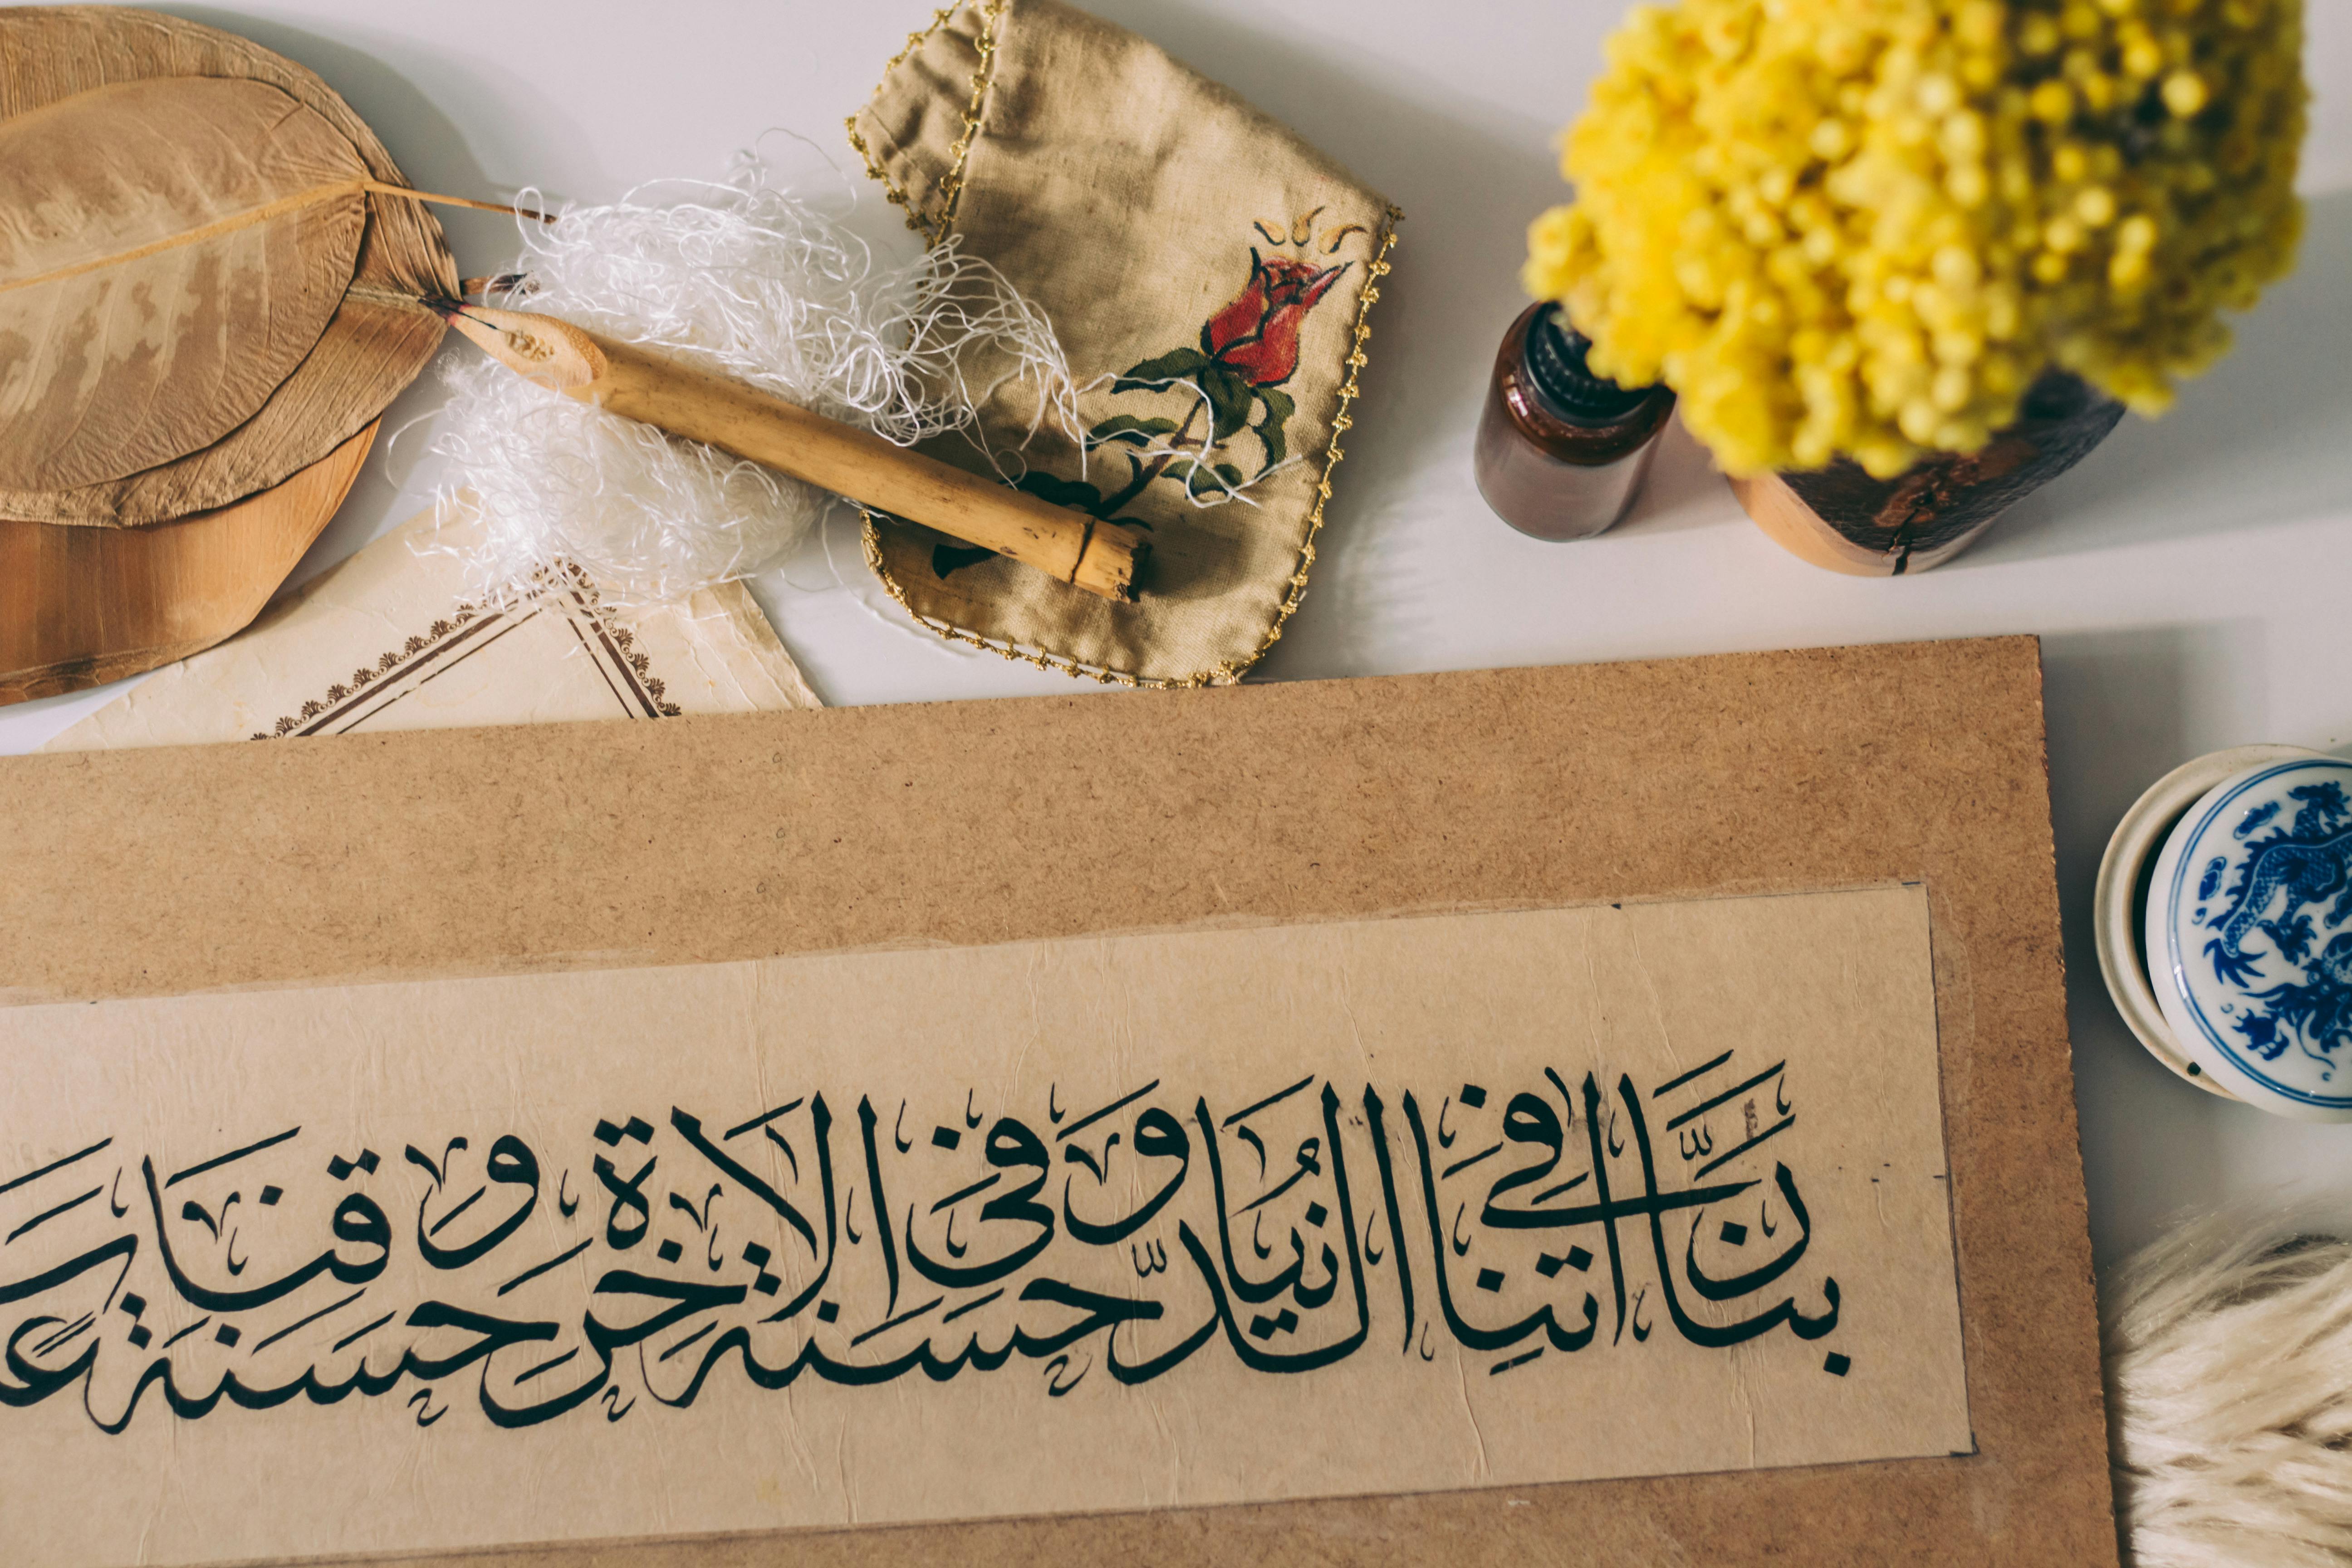 رَبَّنَا اتِنَا فِي الدُّنيَا حَسَنَةً وَفِي الاخِرَةِ حَسَنَةً وَقِنَا